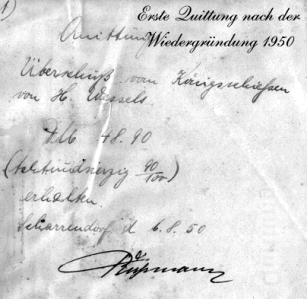 1)
Erste Quittung nach der
Wiedergründung 1950
Quittung
Überschuß vom Königschießen
von H. Wessels
DM 48.90
(Achtundvierzig 90/100)
erhalten.
Scharrendorf d 6.8.50